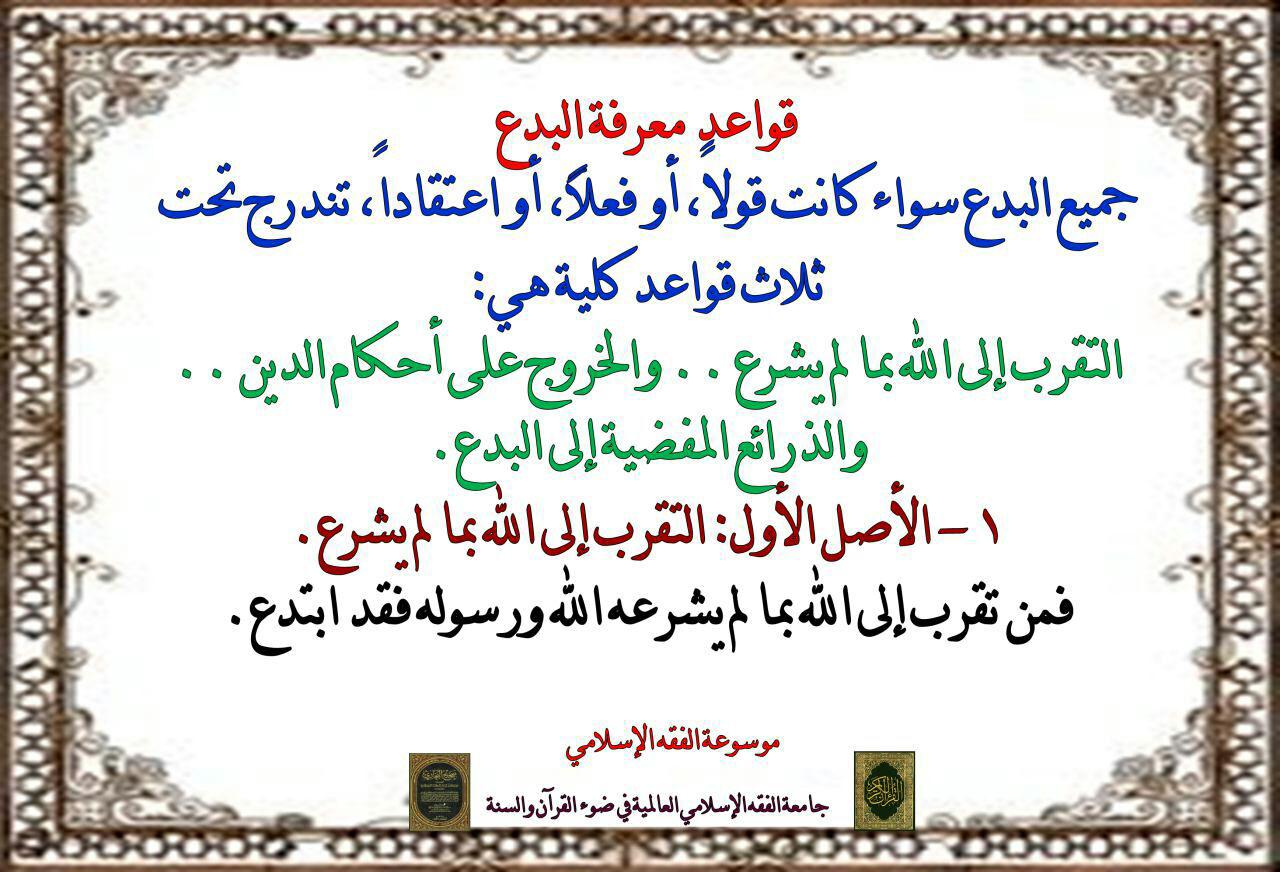 قواعد معرفة البدع
جميع البدع سواء كانت قولاً، أو فعلاً، أو اعتقاداً، تندرج تحت
ثلاث قواعد كلية هي:
التقرب إلى الله بما لم يشرع . . والخروج على أحكام الدين . .
والذرائع المفضية إلى البدع .
١ – الأصل الأول: التقرب إلى الله بما لم يشرع .
فمن تقرب إلى الله بما لم يشرعه الله ورسوله فقد ابتدع .
موسوعة الفقه الإسلامي
جامعة الفقه الإسلامي العالمية في ضوء القرآن والسنة
صحيح البخاري
القرآن الكريم